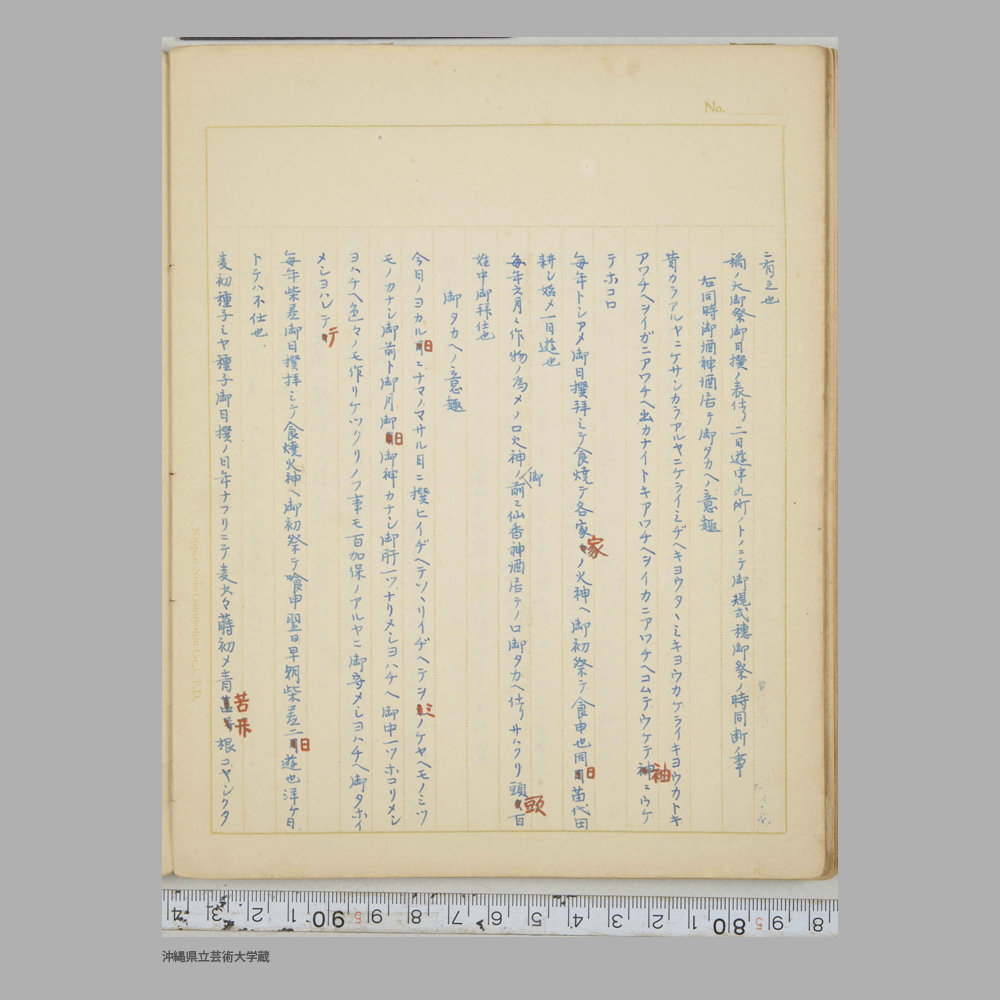 No.
有之也
稲ノ大御祭御日撰ノ表仕ヿ二日遊申九町ノトノニテ御規式穗御祭ノ時同断ノ事
右同時御酒神酒居テ御タカヘノ意趣
昔カラアルヤニケサシカラアルヤニケライミヂヘキヨウタヽミキヨウカケライキヨウカトキ
アワチヘヲイガニアワチヘ出カナイトキアワチヘヲイカニアワチヘコムテウケテ袖ニウケ
テホコロ
毎年トシアメ御日撰拜ミテ食燒テ各家家ノ火神ヘ御初祭テ食申也同日苗代田
耕シ始メ一日遊也
毎年六月ニ作物ノ為メノロ火神ノ御前ニ仙香神酒居テノロ御タカヘ仕ヿサハクリ頭頭百
姓中御拜仕也
御タカヘノ意趣
今日ノヨカル日ミナマノマサル目ニ撰ヒイヂヘテソヽリイヂヘテヲミノケヤヘモノミツ
モノカナシ御前ト御月御日御神カナシ御肝一ツナリメシヨハチヘ御中一ツホコリメシ
ヨハチヘ色々ノモ作リケツクリノフ事モ百加保ノアルヤニ御守メシヨハチヘ御タホイ
メシヨハレテテ
毎年柴差御日撰拜ミテ食燒火神ヘ御初祭テ喰申翌日早朝柴差二日遊也洋ケ日
トテハ不仕也
麦初種子ミヤ種子御日撰ノ日年ナフリニテ麦大々蒔初メ青苦根コヤシクタ
沖縄県立芸術大学蔵